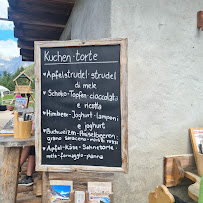 Kuchen-torte
Apfelstrudel-strudel
di mele
Schoko-Topfen-cioccolato
e ricotta
Himbeer-Joghurt-lamponi
e joghurt
Buchweizen-Preiselbeeren
grano saraceno-mirtilli rossi
Apfel-Käse-Sahnetorte
mele-formaggio-panna